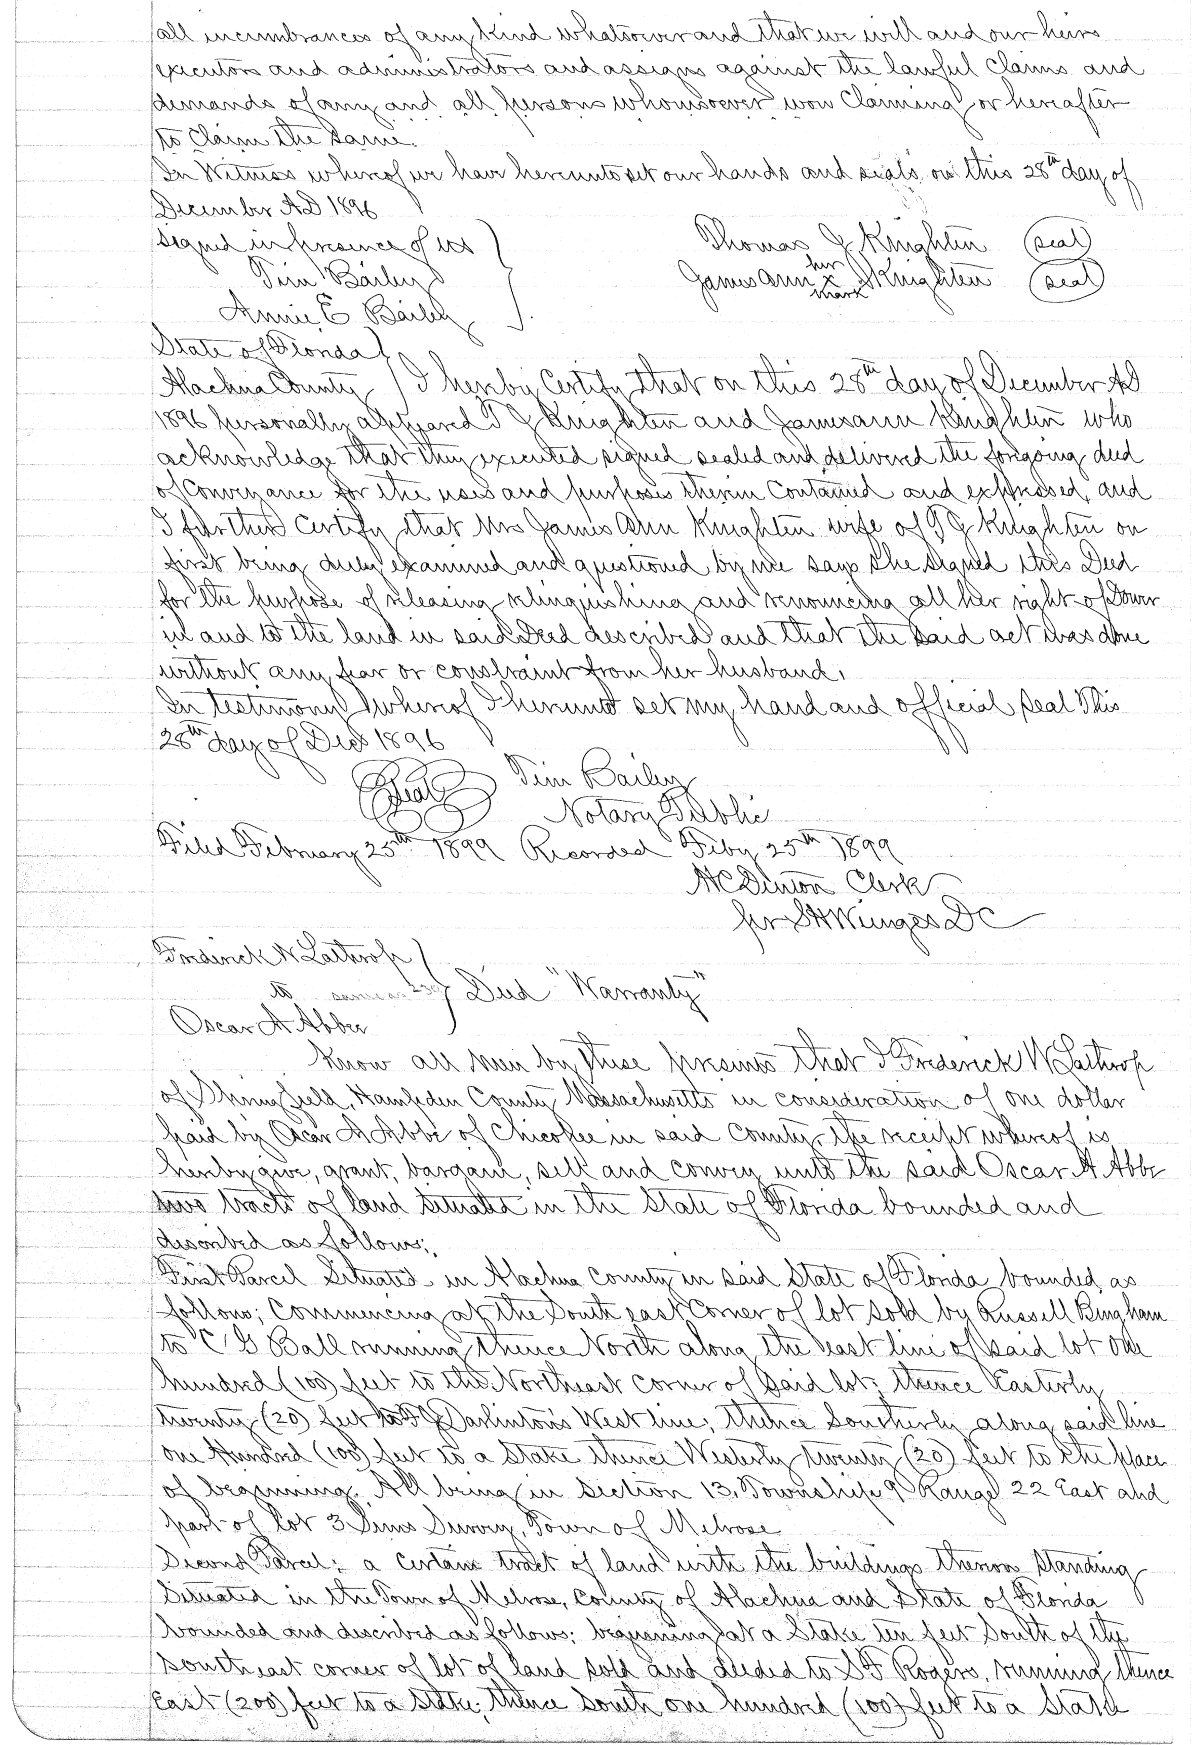 all incumbrances of any kind whatsoever and that we will and our heirs
executors and administrators and assigns against the lawful claims and
demands of any and all persons whomsoever won Claiming or hereafter
to Claim the same.
In Witness whereof we have hereunto set our hands and seals on this 28th day of
December AD 1896
signed in presence of us
Thomas J Knighten (seal)
Tim Bailey
James Ann her x mark Knighten (seal)
Annie E Bailey
State of Florida
Alachua County I hereby Certify that on this 28th day of December AD
1896 personally appeared T J Knighten and Jamesann Knighten who
acknowledge that they executed signed sealed and delivered the forgoing deed
of Conveyance for the uses and purposes therin Contained and expressed, and
I further Certify that Mrs James Ann Knighten wife of T J Knighten on
first being duly examined and questioned by me says she signed this Deed
for the purpose of releasing relinquishing and renouncing all her right of Dower
in and to the land in said Deed described and that the said act was done
without any fear or constraint from her husband.
In testimony whereof I hereunto set my hand and official seal this
28th day of Dec 1896
Seal Tim Bailey
Notary Public
Filed February 25th 1899 Recorded Feby 25th 1899
H C Denton Clerk
per S H Wienges DC
Frederick W Lathrop
to Deed "Warranty"
Oscar A Abbe
Know all men by these presents that I Frederick W Lathrop
of Springfield, Hampden County Massachusetts in consideration of one dollar
paid by Oscar A Abbe of Chicopee in said County, the receipt whereof is
hereby give, grant, bargain, sell and convey unto the said Oscar A Abbe
two tracts of land situated in the State of Florida bounded and
described as follows;
First Parcel Situated in Alachua County in said State of Florida bounded as
follows; Commencing at the South east Corner of lot sold by Russell Bingham
to C G Ball running thence North along the east line of said lot one
hundred (100) feet to the Northeast corner of said lot; thence Easterly
twenty (20) feet to Darlinton's West line; thence Southerly along said line
one Hundred (100) feet to a stake thence Westerly twenty (20) feet to the place
of beginning. All being in Section 13, Township 9 Range 22 East and
part of lot 3 Sims Survey, Town of Melrose
Second Parcel: a certain tract of land with the buildings theron standing
Situated in the Town of Melrose, County of Alachua and State of Florida
bounded and described as follows; beginning at a Stake ten feet South of the
southeast corner of lot of land sold and deeded to S F Rogers, running thence
East (200) feet to a stake; thence South one hundred (100) feet to a stake